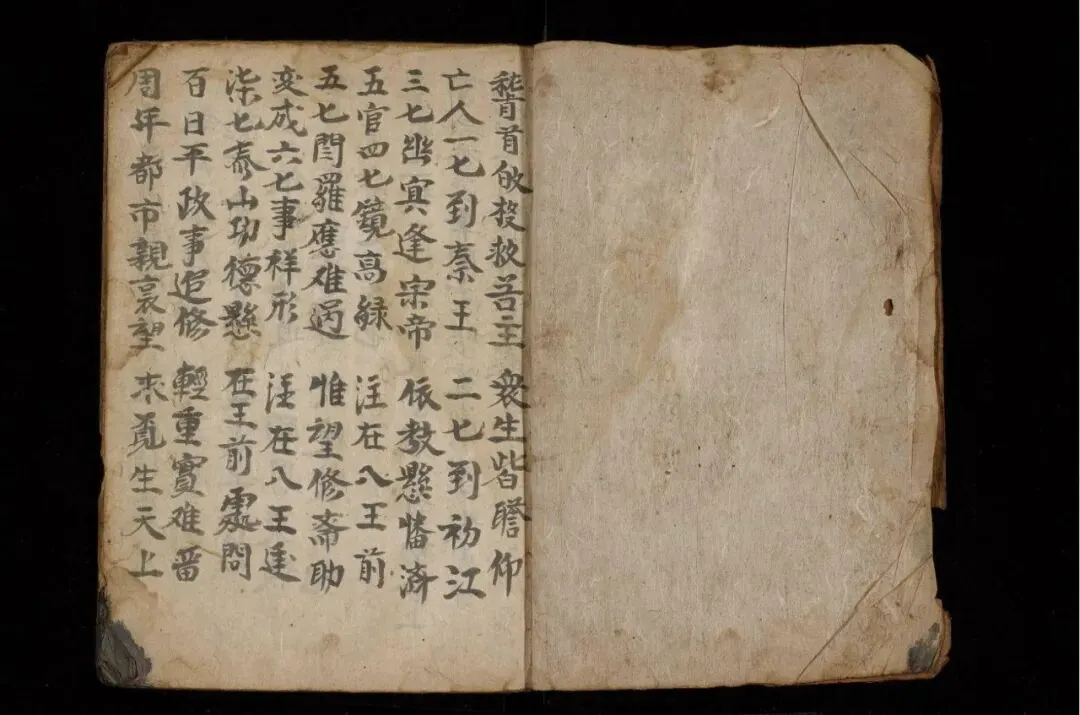 稽首啟投救苦主 衆生皆瞻仰
亡人一七到秦王 二七到初江
三七幽冥逢宋帝 依教懸幡済
五官四七鏡高緑 注在八王前
五七閆羅應难過 惟望修斋助
变成六七事祥形 注在八王廷
柒七泰山功德懸 在王前處問
百日平政事追修 輕重實难
周年都市親哀望 求覓生天上